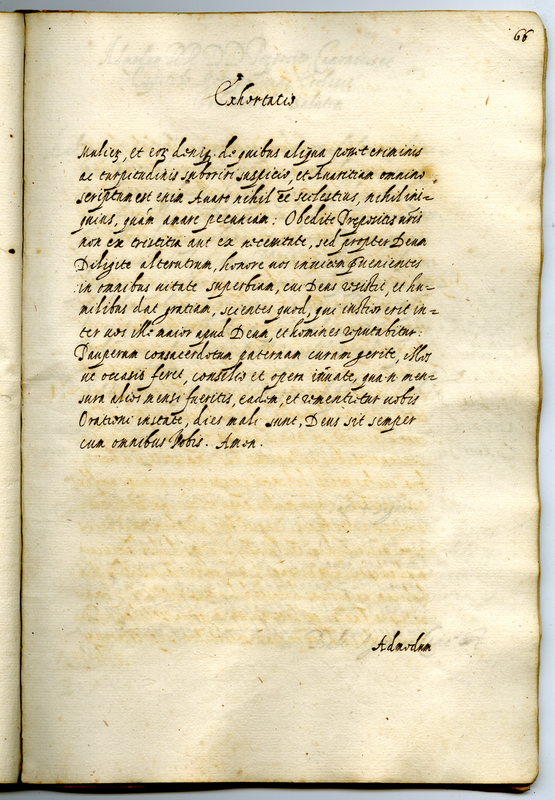 66
Exhortatio
Mulieȝ, et eoȝ deniq. de quibus aliqua posset criminis
ac turpitudinis suboriri suspicio, et Avaritiam omnino
scriptum est enim Avaro nihil ēē scelestius, nihil ini=
quius, quam amare pecuniam: Obedite Prepositis vr̄is
non ex tristitia aut ex necessitate, sed propter Deum
Diligite alterutrum, honore vos invicem p̄uenientes
in omnibus vitate superbiam, cui Deus resistit, et hu=
milibus dat gratiam, scientes quod, qui iustior erit in=
ter vos Ille maior apud Deum, et homines reputabitur:
Pauperum consacerdotum paternam curam gerite, Illos
ut occasio feret, consilio et opera iuuate, qua n. men=
sura alios mensi fueritis, eadem, et rementietur vobis
Orationi instate, dies mali sunt, Deus sit semper
cum omnibus Vobis. Amen.
Admodum